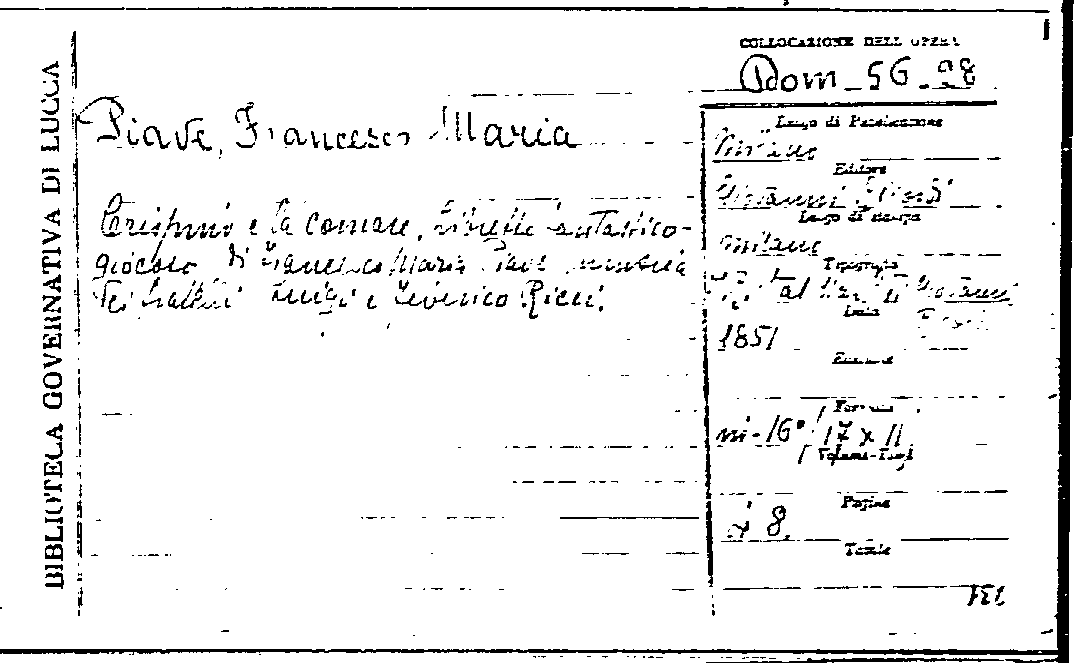 BIBLIOTECA GOVERNATIVA DI LUCCA
COLLOCAZIONE DELL OPERA
Dom - 56 - 28
Piave, Francesco Maria
Crispino e la comare. Libretto fantastico-
giocoso di Francesco Maria Piave musica
dei fratelli Luigi e Federico Ricci.
Luogo di Pubblicazione
Milano
Editore
Giovanni
Luogo di stampa
Milano
Tipografo
Giovanni
Data
1851
Edizione
Formato
in-16° / 17 x 11
Volumi-Tomi
Pagine
8.
Tavole